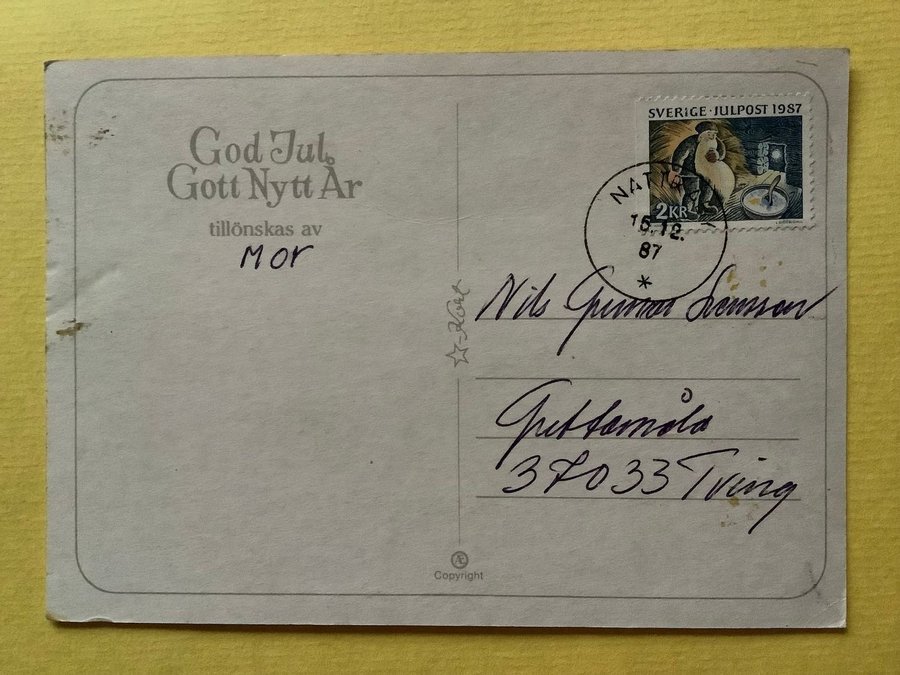 God Jul,
Gott Nytt År
tillönskas av
Mor
SVERIGE · JULPOST 1987
2 KR
15.12.
87
*
Kort
Nils Gunnar Svensson
37033 Tving
Æ
Copyright